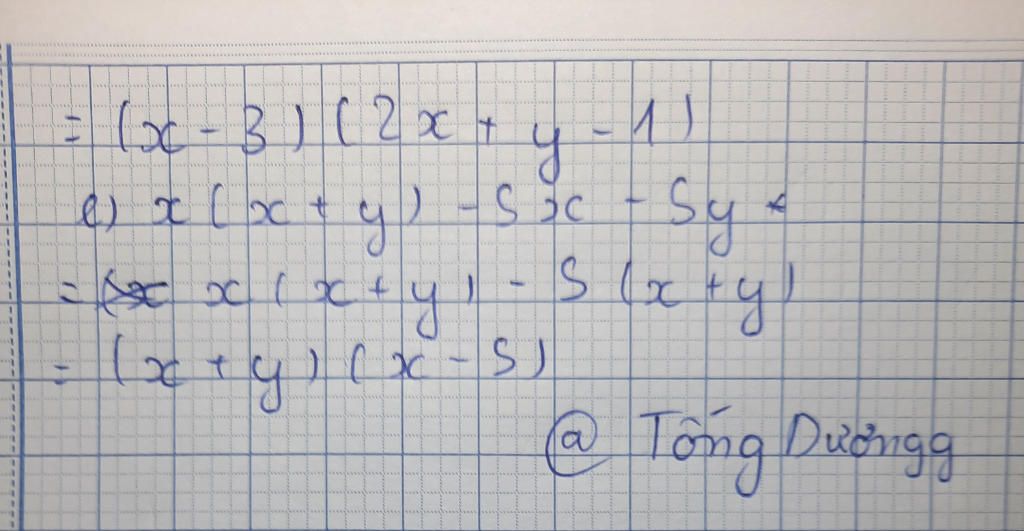 = (x - 3) (2x + y - 1)
e) x (x + y) - 5x - 5y
= x (x + y) - 5 (x + y)
= (x + y) (x - 5)
@ Tống Dươngg